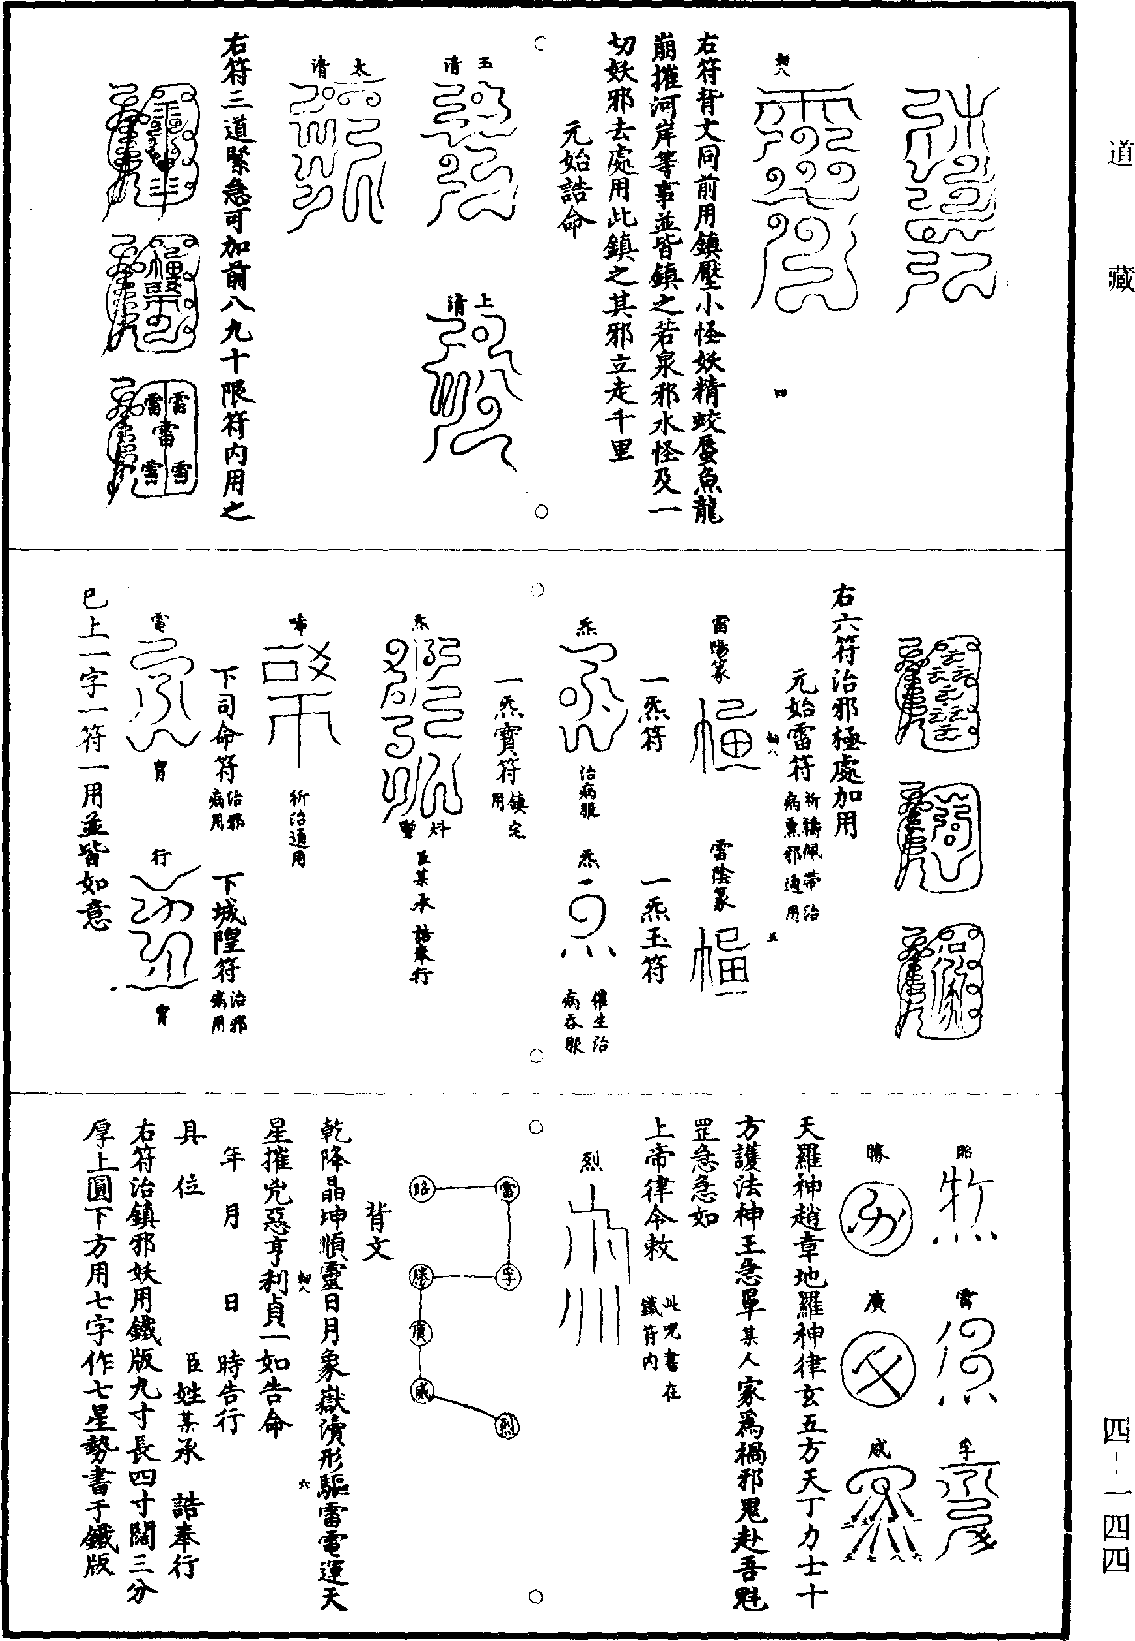 道藏
四-一四四
右符背文同前用鎮壓小怪妖精蛟蜃魚龍
崩摧河岸等事並皆鎮之若泉邪水怪及一
切妖邪去處用此鎮之其邪立走千里
元始誥命
玉清
上清
太清
右符三道緊急可加前八九十限符内用之
右六符治邪極處加用
元始雷符 祈禱佩帶治病熏邪通用
雷陽篆
雷陰篆
一炁符
一炁玉符
炁 治病服
炁 催生治病吞服
一炁寶符 鎮宅用
炁
臣某承 誥奉行
唏 祈治通用
下司命符 治邪病用
下城隍符 治邪病用
電
行
已上一字一符一用並皆如意
昭
雷
勝
廣
威
天羅神趙章地羅神律玄五方天丁力士十
方護法神王急單某人家爲禍邪鬼赴吾魁
罡急急如
上帝律令敕 此咒書在鐵符内
烈
背文
乾降晶坤順靈日月象嶽瀆形驅雷電運天
星摧兇惡亨利貞一如告命
年 月 日 時告行
具位 臣姓某承 誥奉行
右符治鎮邪妖用鐵版九寸長四寸闊三分
厚上圓下方用七字作七星勢書于鐵版